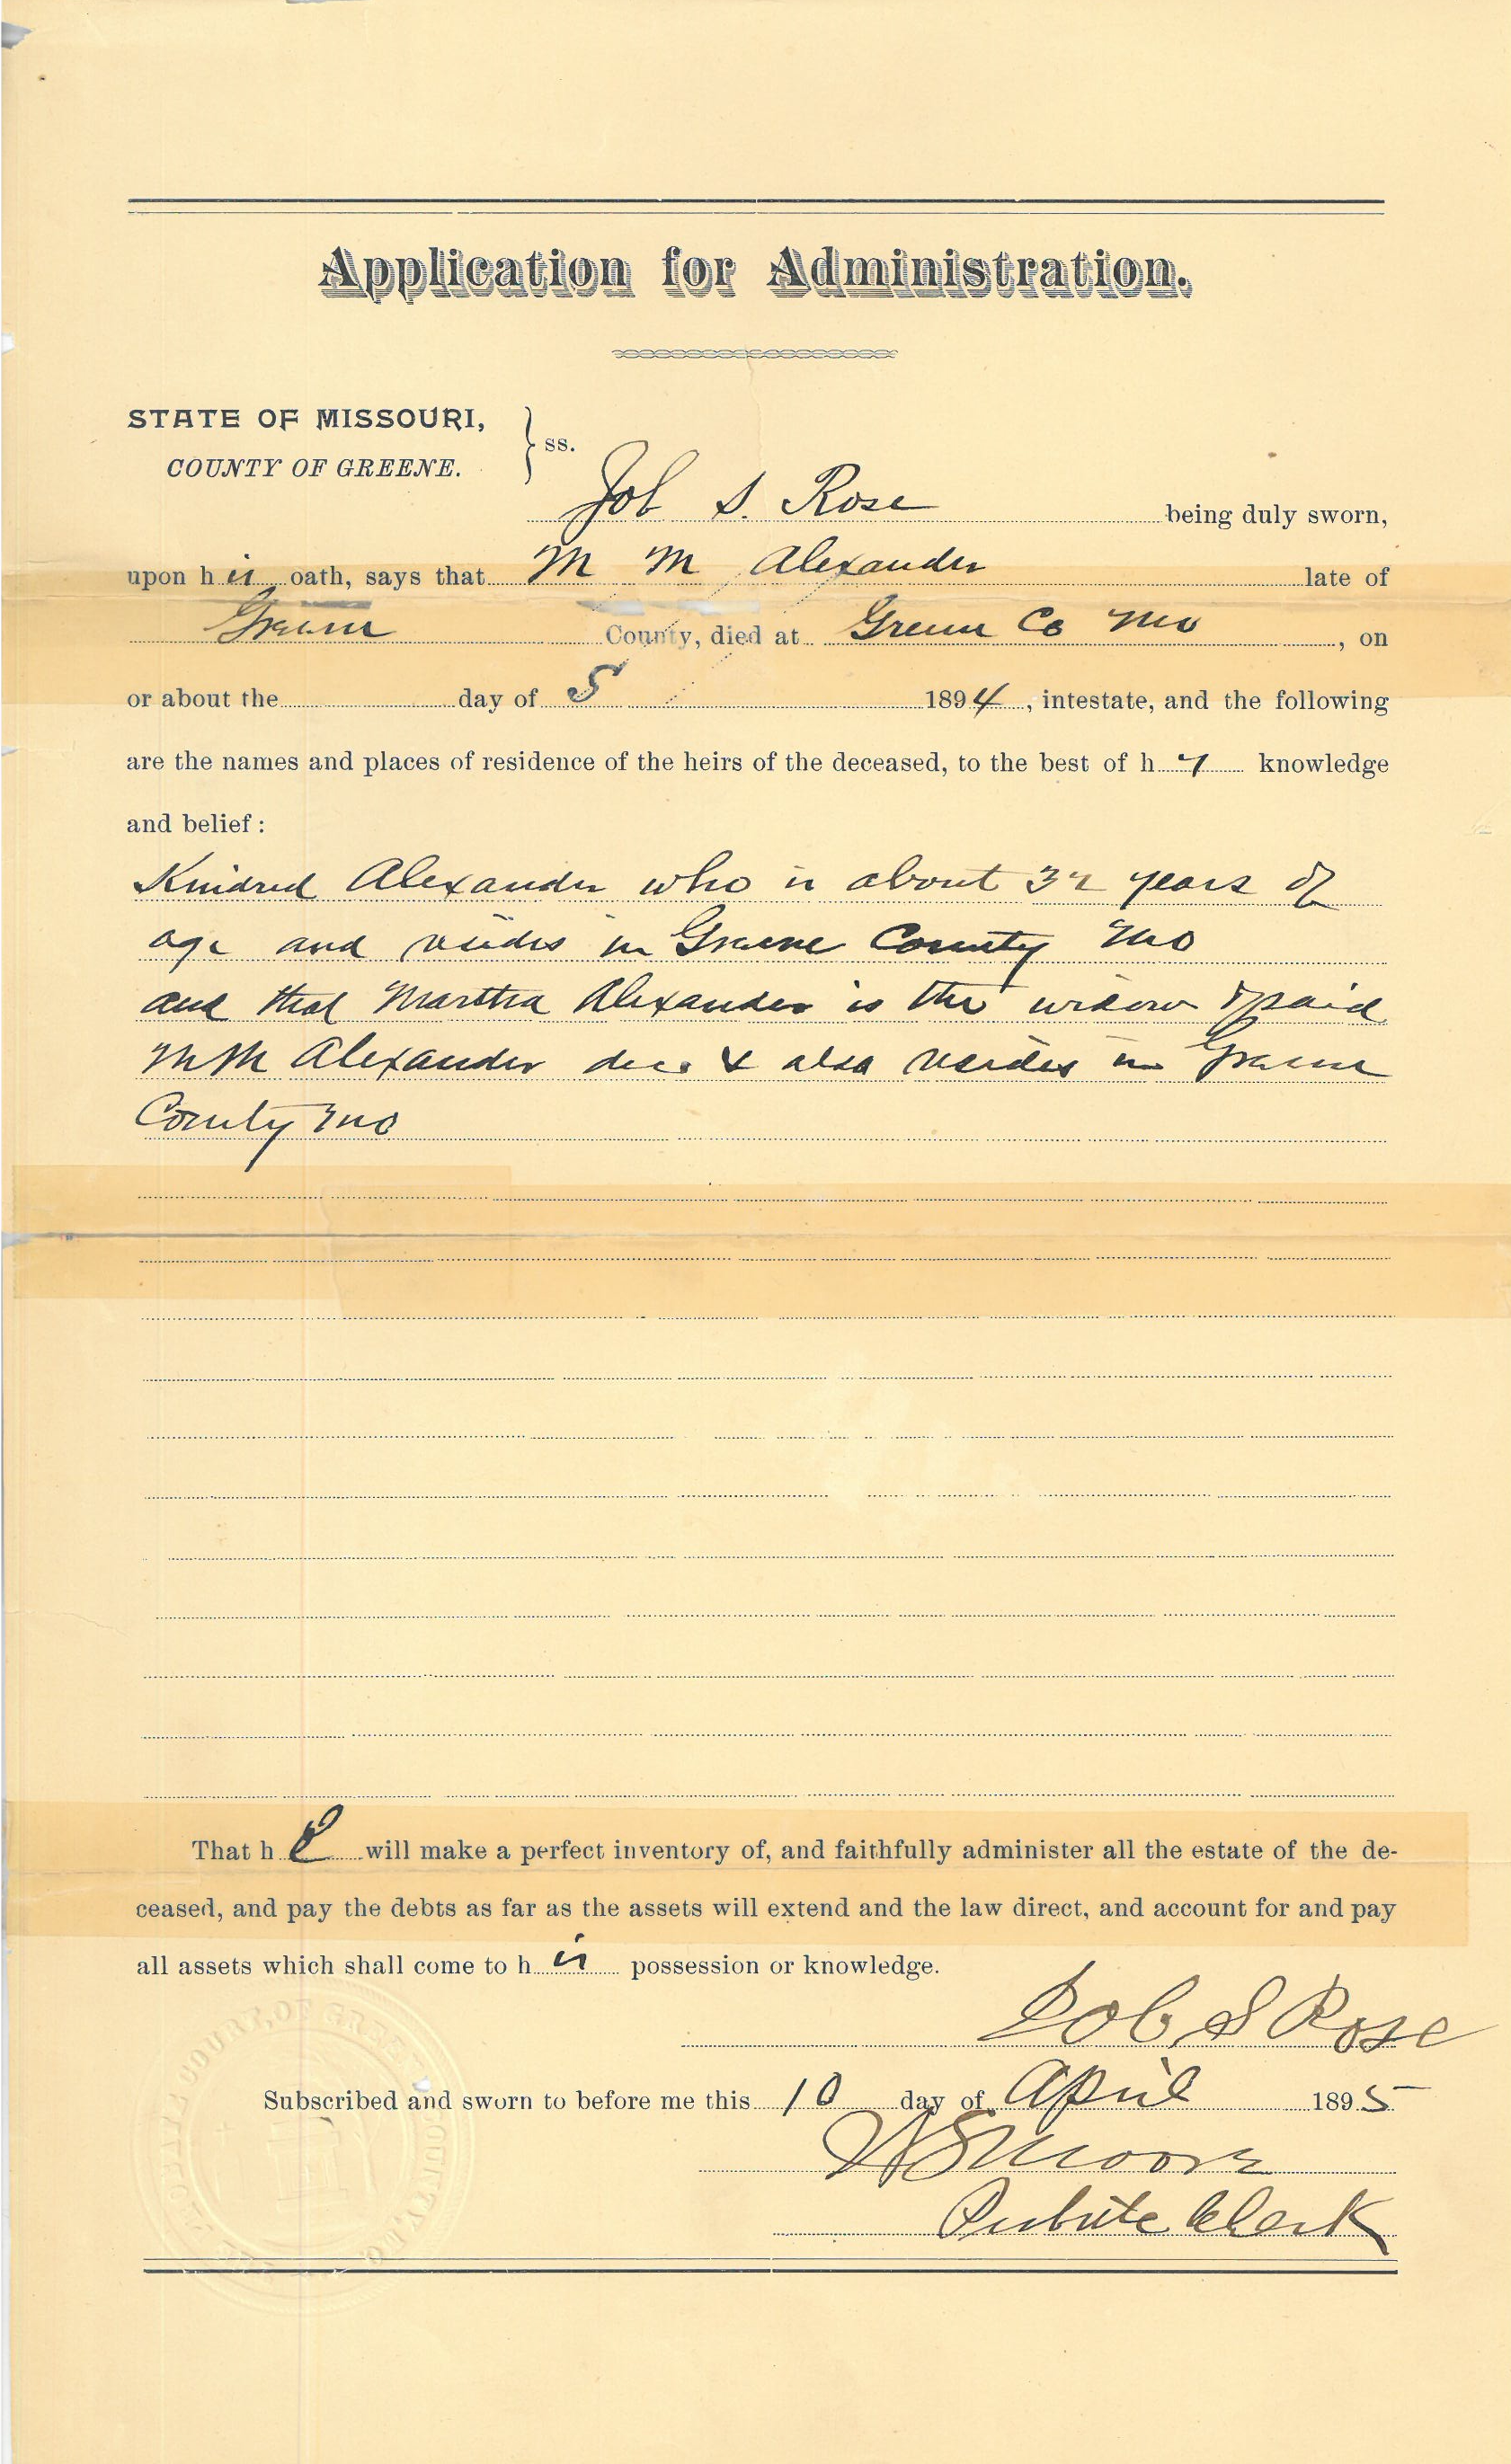 Application for Administration.
STATE OF MISSOURI,
COUNTY OF GREENE.
ss.
Job S. Rose being duly sworn,
upon his oath, says that M M Alexander late of
Greene County, died at Greene Co Mo , on
or about the day of S 1894, intestate, and the following
are the names and places of residence of the heirs of the deceased, to the best of h knowledge
and belief:
Kindred Alexander who is about 32 years of
age and resides in Greene County Mo
and that Martha Alexander is the widow of said
M M Alexander dec. & also resides in Greene
County Mo
That he will make a perfect inventory of, and faithfully administer all the estate of the de-
ceased, and pay the debts as far as the assets will extend and the law direct, and account for and pay
all assets which shall come to his possession or knowledge.
Job S Rose
Subscribed and sworn to before me this 10 day of April 1895
Moore
Probate Clerk
COURT, OF GREENE COUNTY,